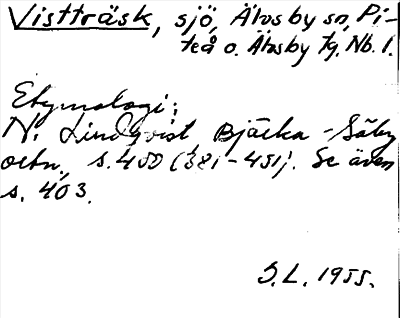 Vistträsk, sjö, Älvsby sn, Pi-
teå o. Älvsby tg, Nb. l.
Etymologi:
N. Lindqvist, Bjärka-Säby
ortn., s. 450 (381-451). Se även
s. 403.
S.L. 1955.